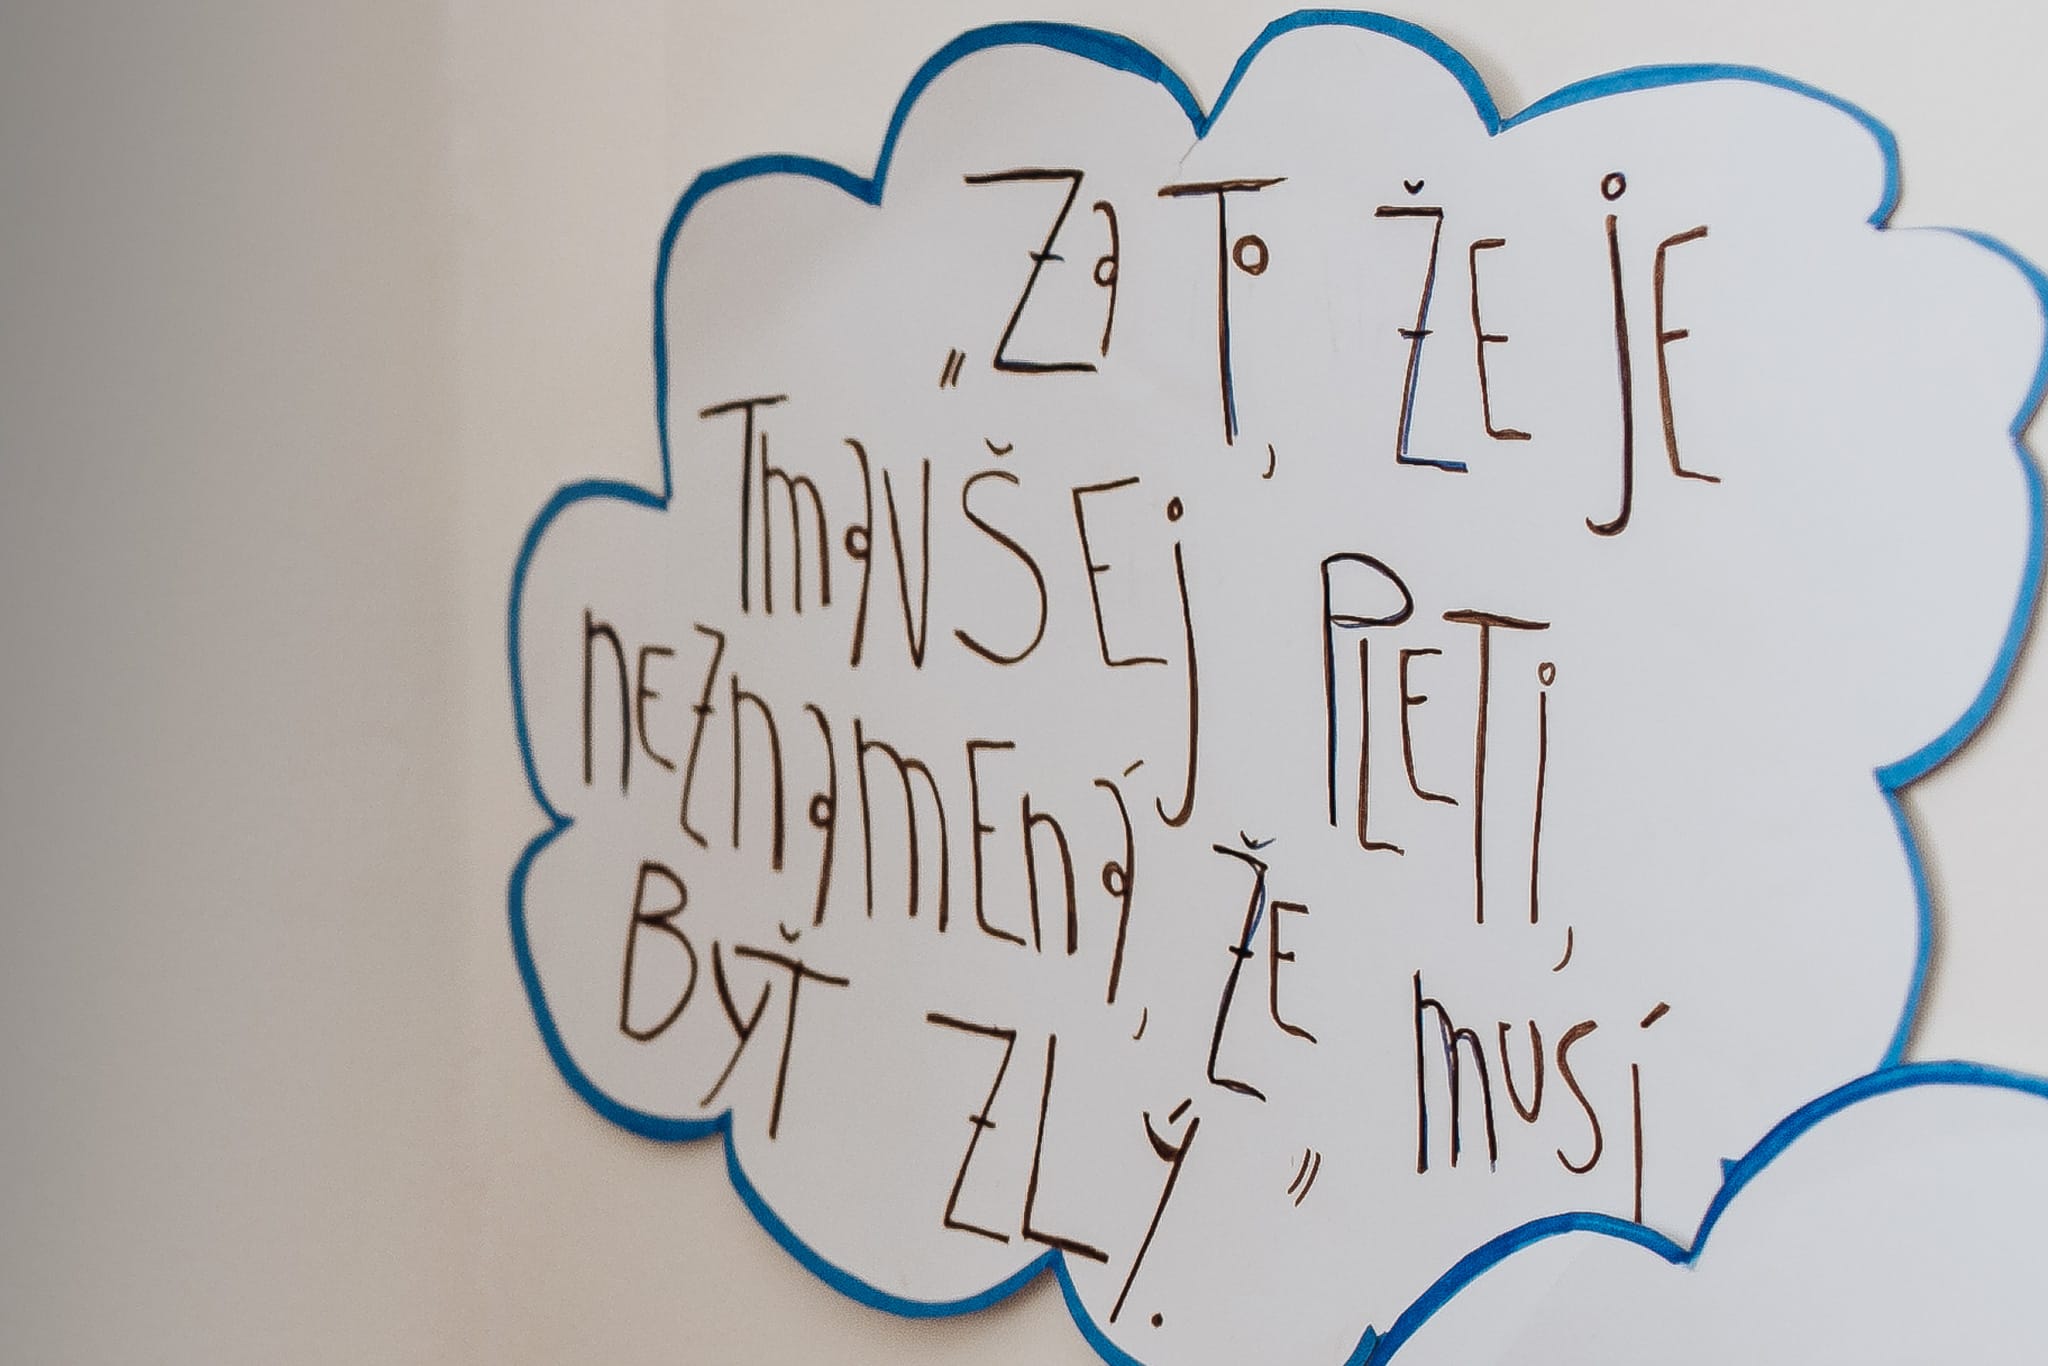 „Za To, ŽE jE
TmavŠEj PLETi,
nEZnamEná, ŽE musí
BYŤ ZLÝ."